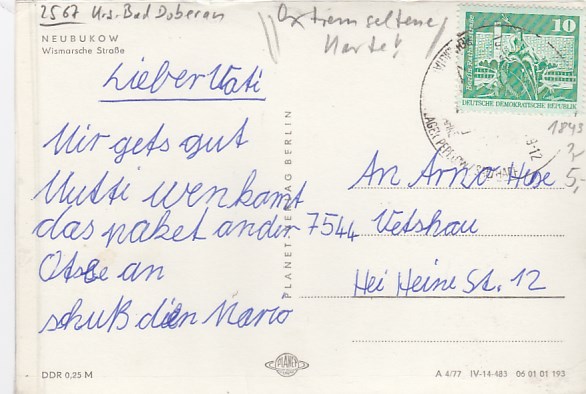 2567 Krs. Bad Doberan
Extrem seltene
Karte!
NEUBUKOW
Wismarsche Straße
10
DEUTSCHE DEMOKRATISCHE REPUBLIK
1843
5,-
Lieber Vati
Mir gets gut
Mutti wen komt
das paket an der
Otsee an
schuß dein Mario
PLANET-VERLAG BERLIN
An Arno Hese
7544 Vetshau
Hei Heine St. 12
PLANET
DDR 0,25 M
A 4/77 IV-14-483 06 01 01 193